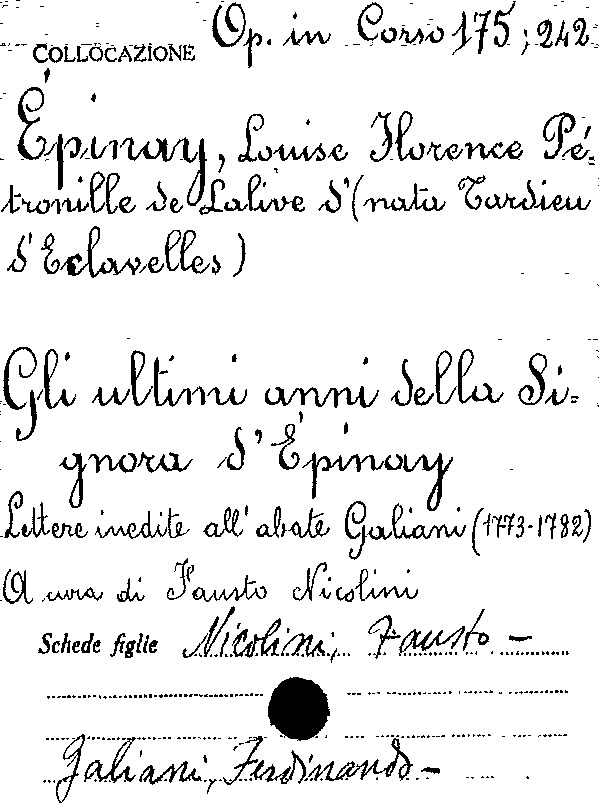 COLLOCAZIONE Op. in Corso 175; 242
Épinay, Louise Florence Pé-
tronille de Lalive d'(nata Tardieu
d'Esclavelles)
Gli ultimi anni della Si-
gnora d'Épinay
Lettere inedite all'abate Galiani (1773-1782)
A cura di Fausto Nicolini
Schede figlie Nicolini, Fausto —
Galiani, Ferdinando —